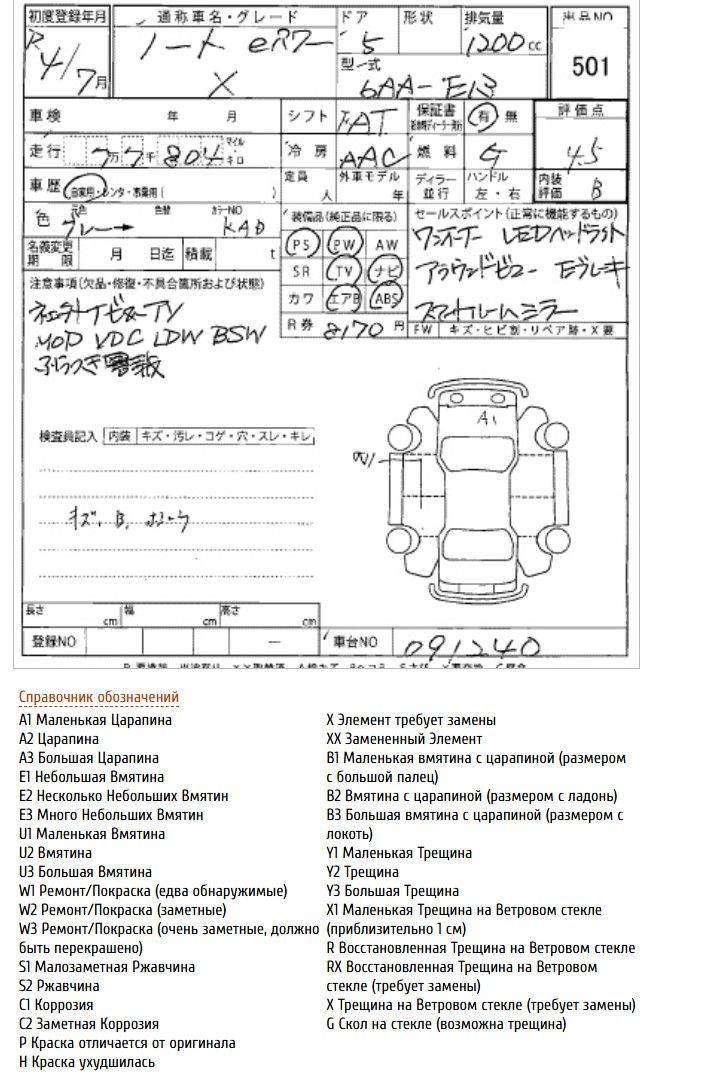 初度登録年月 通称車名・グレード ドア 形状 排気量 出品NO
R4/7月 ノート eパワー X 5 1200cc 501
型式 6AA-E13
車検 年 月 シフト FAT 保証書 有 無 評価点
走行 7万7千804 マイル キロ 冷房 AAC 燃料 G 4.5
定員 人 外車モデル 年 ディラー並行 ハンドル 左・右 内装評価 B
車歴 自家用・レンタ・事業用( )
色 元色 グレー→ 色替 カラーNO KAD
装備品(純正品に限る) セールスポイント(正常に機能するもの)
PS PW AW ワンオーナー LEDヘッドライト
名義変更期限 月 日迄 積載 t
SR TV ナビ アラウンドビュー Eブレーキ
注意事項(欠品・修復・不具合箇所および状態)
カワ エアB ABS スマートルームミラー
R券 8170円 FW キズ・ヒビ割・リペア跡・X要
TV
MOD VDC LDW BSW
A1
検査員記入 内装 キズ・汚レ・コゲ・穴・スレ・キレ
キズ、B、
長さ cm 幅 cm 高さ cm
登録NO — 車台NO 091240
Справочник обозначений
A1 Маленькая Царапина
A2 Царапина
A3 Большая Царапина
E1 Небольшая Вмятина
E2 Несколько Небольших Вмятин
E3 Много Небольших Вмятин
U1 Маленькая Вмятина
U2 Вмятина
U3 Большая Вмятина
W1 Ремонт/Покраска (едва обнаружимые)
W2 Ремонт/Покраска (заметные)
W3 Ремонт/Покраска (очень заметные, должно
быть перекрашено)
S1 Малозаметная Ржавчина
S2 Ржавчина
C1 Коррозия
C2 Заметная Коррозия
P Краска отличается от оригинала
H Краска ухудшилась
X Элемент требует замены
XX Замененный Элемент
B1 Маленькая вмятина с царапиной (размером
с большой палец)
B2 Вмятина с царапиной (размером с ладонь)
B3 Большая вмятина с царапиной (размером с
локоть)
Y1 Маленькая Трещина
Y2 Трещина
Y3 Большая Трещина
X1 Маленькая Трещина на Ветровом стекле
(приблизительно 1 см)
R Восстановленная Трещина на Ветровом стекле
RX Восстановленная Трещина на Ветровом
стекле (требует замены)
X Трещина на Ветровом стекле (требует замены)
G Скол на стекле (возможна трещина)